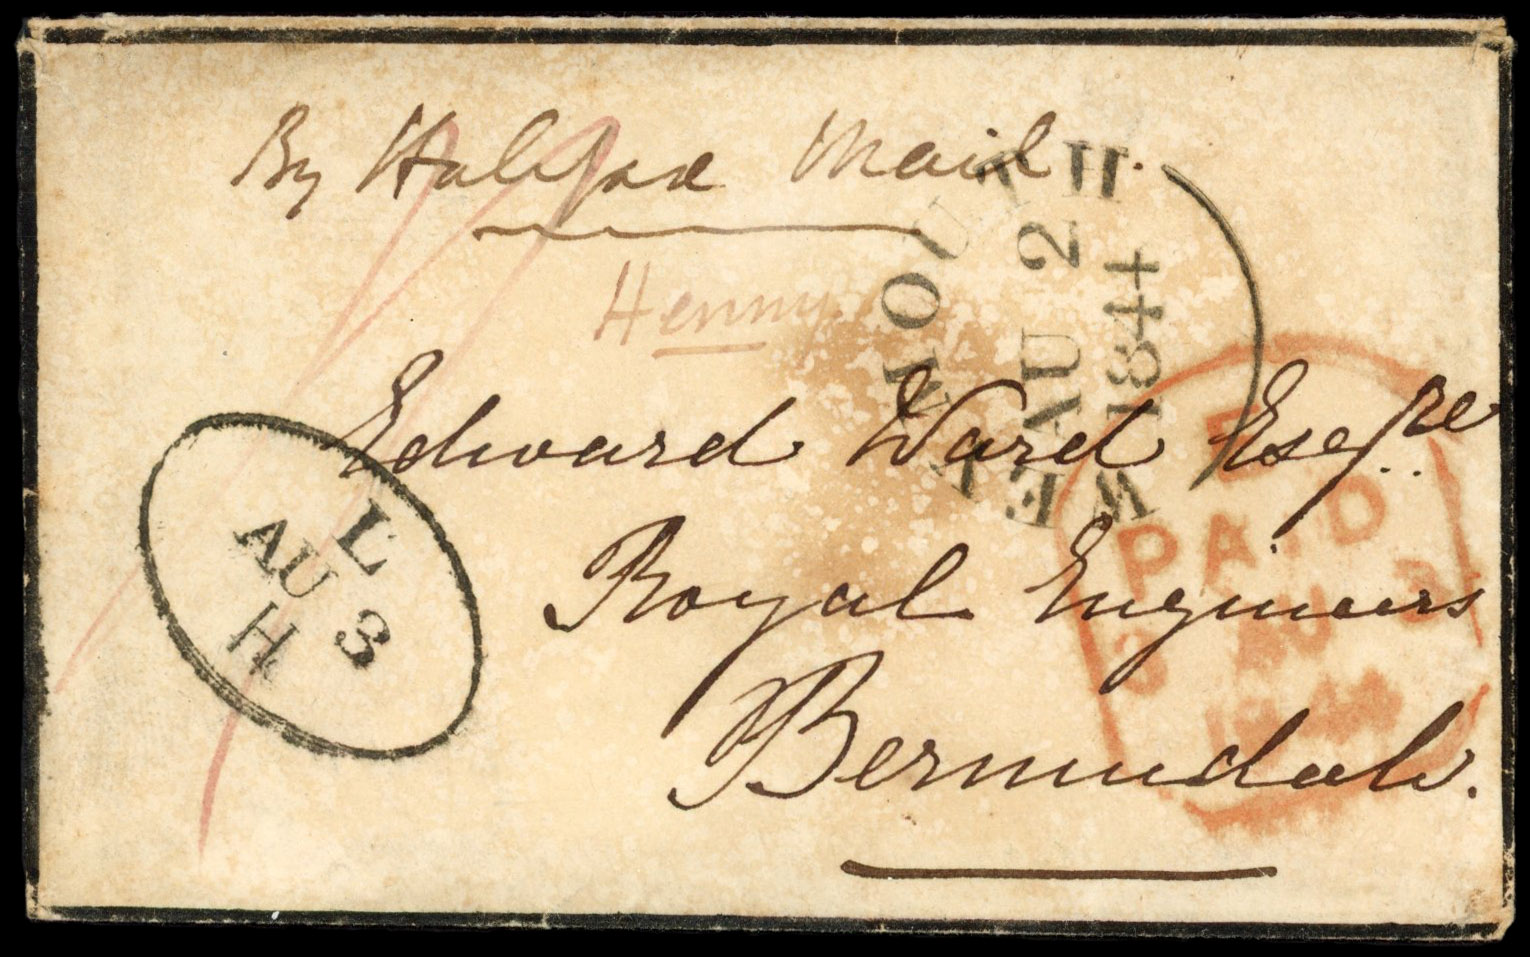 By Halifax Mail.
Henny
Edward Ward Esqre
Royal Engineers
Bermuda.
WEYMOUTH
AU 2
1844
L
AU 3
H
PAID
3 AU 3
1844